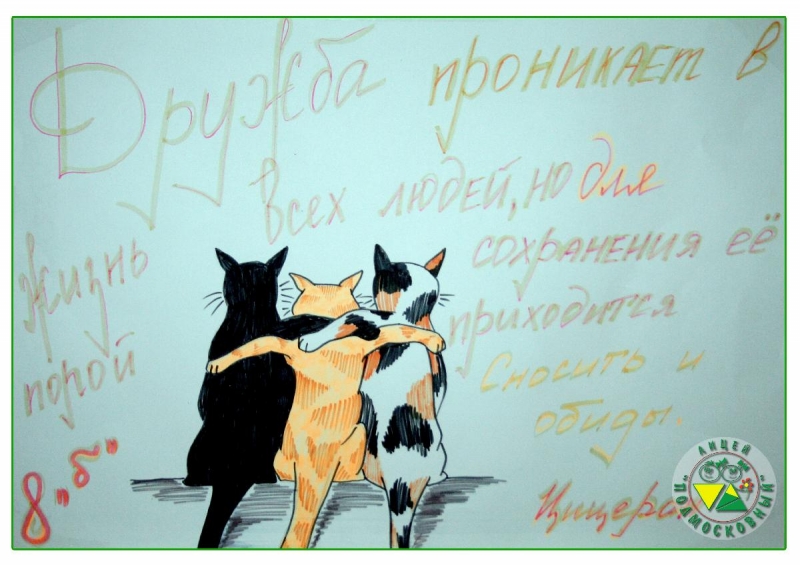 Дружба проникает в
жизнь всех людей, но для
сохранения её
порой приходится
Сносить и
обиды.
Цицеро
8 „б"
ЛИЦЕЙ
"ПОДМОСКОВНЫЙ"